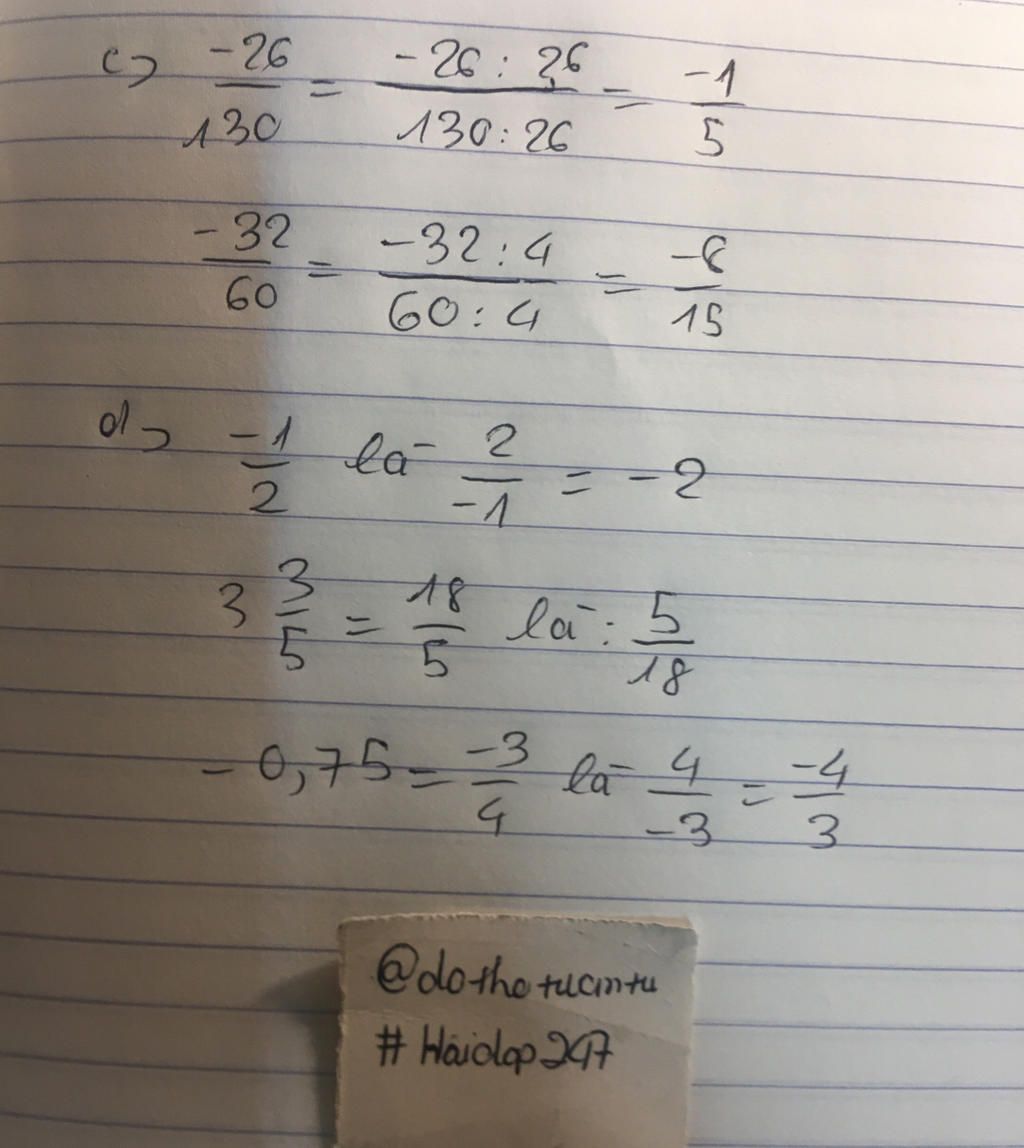 c) -26/130 = -26 : 26/130 : 26 = -1/5
-32/60 = -32 : 4/60 : 4 = -8/15
d) -1/2 là 2/-1 = -2
3 3/5 = 18/5 là : 5/18
- 0,75 = -3/4 là 4/-3 = -4/3
@dothotucmtu
# Hoidap247